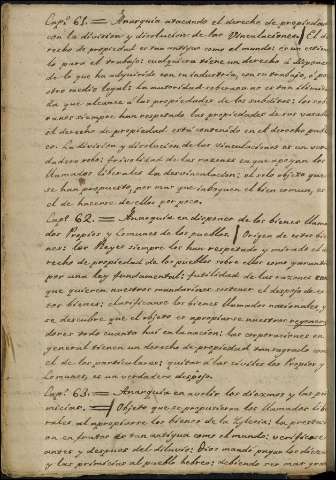 Capº 61. = Anarquia atacando el derecho de propiedad
con la division y disolucion de las Vinculaciones./ El de
recho de propiedad es tan antiguo como el mundo: es un estím
lo para el trabajo: cualquiera tiene un derecho á disponer
de lo que ha adquirido con su industria, con su trabajo, ó por
otro medio legal: la autoridad soberana no es tan ilimita
da que alcance á las propiedades de los subditos: los sobe
ranos siempre han respetado las propiedades de sus vasallos
el derecho de propiedad está contenido en el derecho publi
co. La division y disolucion de las vinculaciones es un ver
dadero robo: frivolidad de las razones en que apoyan los
llamados liberales la desvinculacion: el solo objeto que
se han propuesto, por mas que invoquen el bien comun, es
el de hacerse de ellos por poco.
Capº 62. = Anarquia en disponer de los bienes llama
dos Propios y Comunes de los pueblos. / Origen de estos bie
nes: los Reyes siempre los han respetado y mirado el de
recho de propiedad de los pueblos sobre ellos como garantido
por una ley fundamental: futilidad de las razones con
que quieren nuestros mandarines sostener el despojo de es
tos bienes; clasificanse los bienes llamados nacionales, y
se descubre que el objeto es apropiarse nuestros regenera
dores todo cuanto hai en la nacion: las corporaciones en
general tienen un derecho de propiedad tan sagrado como
el de los particulares: quitar á los pueblos los Propios y
Comunes, es un verdadero despojo.
Capº 63. = Anarquia en abolir los diezmos y las pri
micias. =/ Objeto que se propusieron los llamados libe
rales al apropiarse los bienes de la Yglesia: la prestaci
on en frutos es tan antigua como el mundo: verificose
antes y despues del diluvio: Dios mandó pagar los diezmos
y las primicias al pueblo hebreo: debiendo ser mas gran